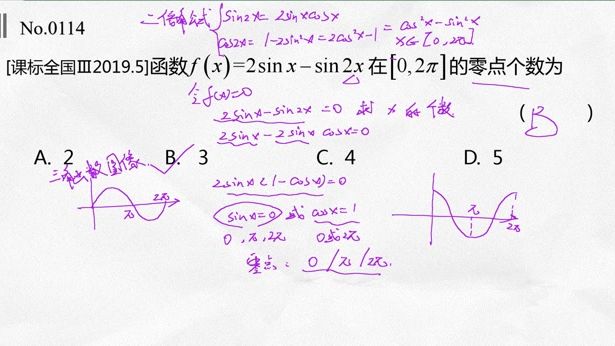 二倍角公式 { sin2x = 2sinxcosx
cos2x = 1-2sin²x = 2cos²x-1 = cos²x-sin²x
No.0114
x∈[0,2π]
[课标全国Ⅲ2019.5]函数f(x)=2sin x−sin 2x在[0,2π]的零点个数为
令f(x)=0
2sinx-sin2x=0 求 x 的个数
( B )
2sinx-2sinx cosx=0
A. 2 B. 3 C. 4 D. 5
三角函数图像
2sinx(1-cosx)=0
sinx=0 或 cosx=1
π 2π
π 2π
0,π,2π 0或2π
零点: 0/π/2π.